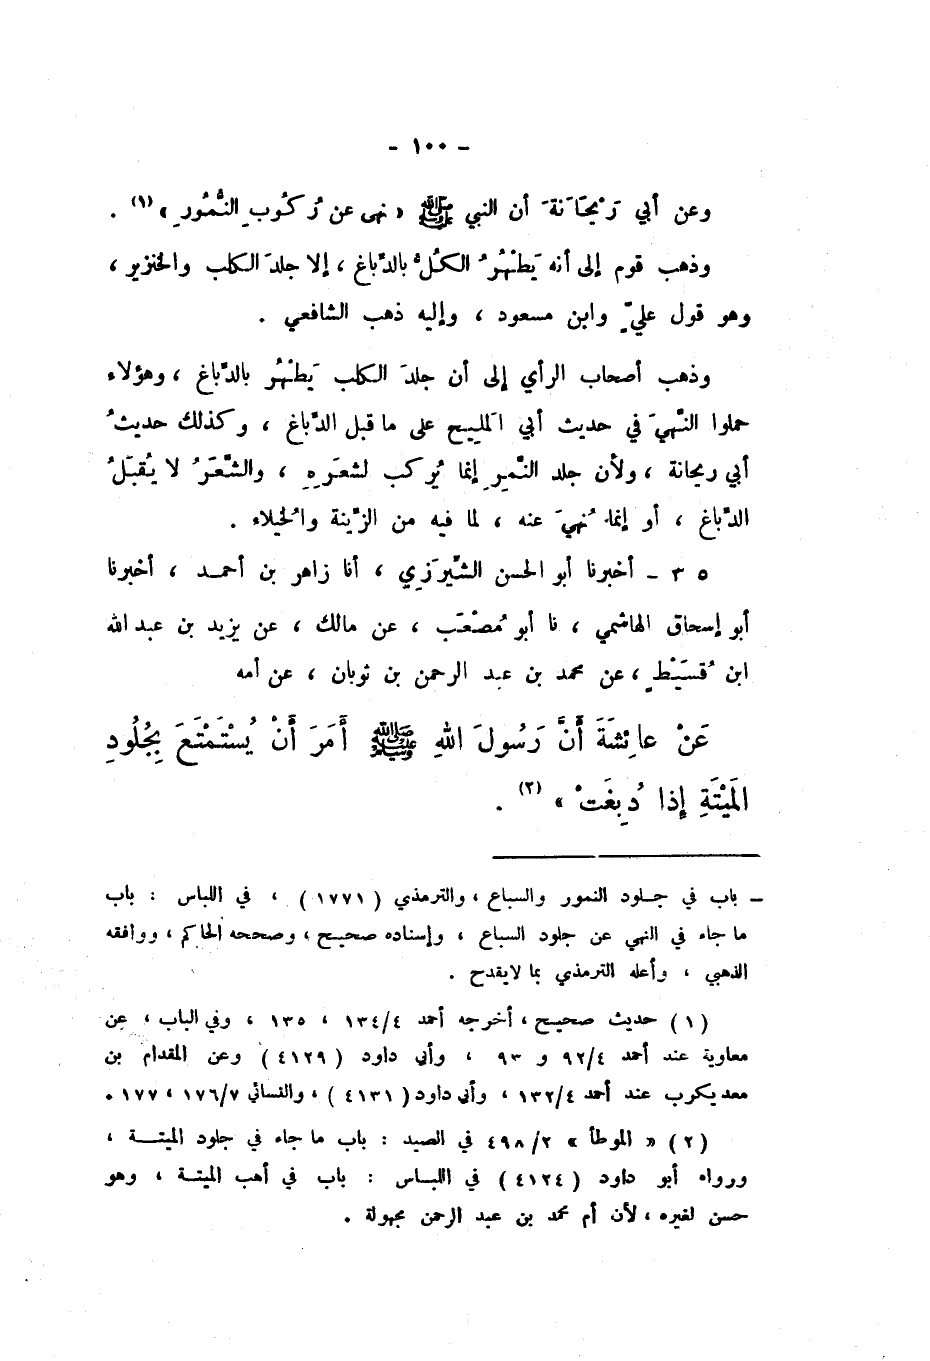 - ١٠٠ -
وعن أبي رَيْحَانَةَ أن النبي ﷺ « نهى عن رُكُوبِ النُّمُورِ » (١) .
وذهب قوم إلى أنه يَطْهُرُ الكُلُّ بالدِّباغ ، إلا جلدَ الكلب والخنزير ،
وهو قول عليٍّ وابن مسعود ، وإليه ذهب الشافعي .
وذهب أصحاب الرأي إلى أن جلدَ الكلب يَطْهُر بالدِّباغ ، وهؤلاء
حملوا النَّهيَ في حديث أبي المَليح على ما قبل الدِّباغ ، وكذلك حديثُ
أبي ريحانة ، ولأن جلد النَّمِرِ إنما يُركب لشعَرِهِ ، والشَّعَرُ لا يُقبَلُ
الدِّباغ ، أو إنما نُهِيَ عنه ، لما فيه من الزِّينة والخُيلاء .
٣٥ - أخبرنا أبو الحسن الشِّيرَزي ، أنا زاهر بن أحمد ، أخبرنا
أبو إسحاق الهاشمي ، نا أبو مُصْعَب ، عن مالك ، عن يزيد بن عبد الله
ابن قُسَيْطٍ ، عن محمد بن عبد الرحمن بن ثوبان ، عن أمه
عَنْ عائِشَةَ أَنَّ رَسُولَ اللهِ ﷺ أَمَرَ أَنْ يُسْتَمْتَعَ بِجُلُودِ
المَيْتَةِ إِذا دُبِغَتْ » (٢) .
– باب في جلود النمور والسباع ، والترمذي ( ١٧٧١ ) ، في اللباس : باب
ما جاء في النهي عن جلود السباع ، وإسناده صحيح ، وصححه الحاكم ، ووافقه
الذهبي ، وأعله الترمذي بما لايقدح .
(١) حديث صحيح ، أخرجه أحمد ١٣٤/٤ ، ١٣٥ ، وفي الباب ، عن
معاوية عند أحمد ٩٢/٤ و ٩٣ ، وأبي داود ( ٤١٢٩ ) وعن المقدام بن
معديكرب عند أحمد ١٣٢/٤ ، وأبي داود ( ٤١٣١ ) ، والنسائي ١٧٦/٧ ، ١٧٧ .
(٢) « الموطأ » ٤٩٨/٢ في الصيد : باب ما جاء في جلود الميتة ،
ورواه أبو داود ( ٤١٢٤ ) في اللباس : باب في أهب الميتة ، وهو
حسن لغيره ، لأن أم محمد بن عبد الرحمن مجهولة .